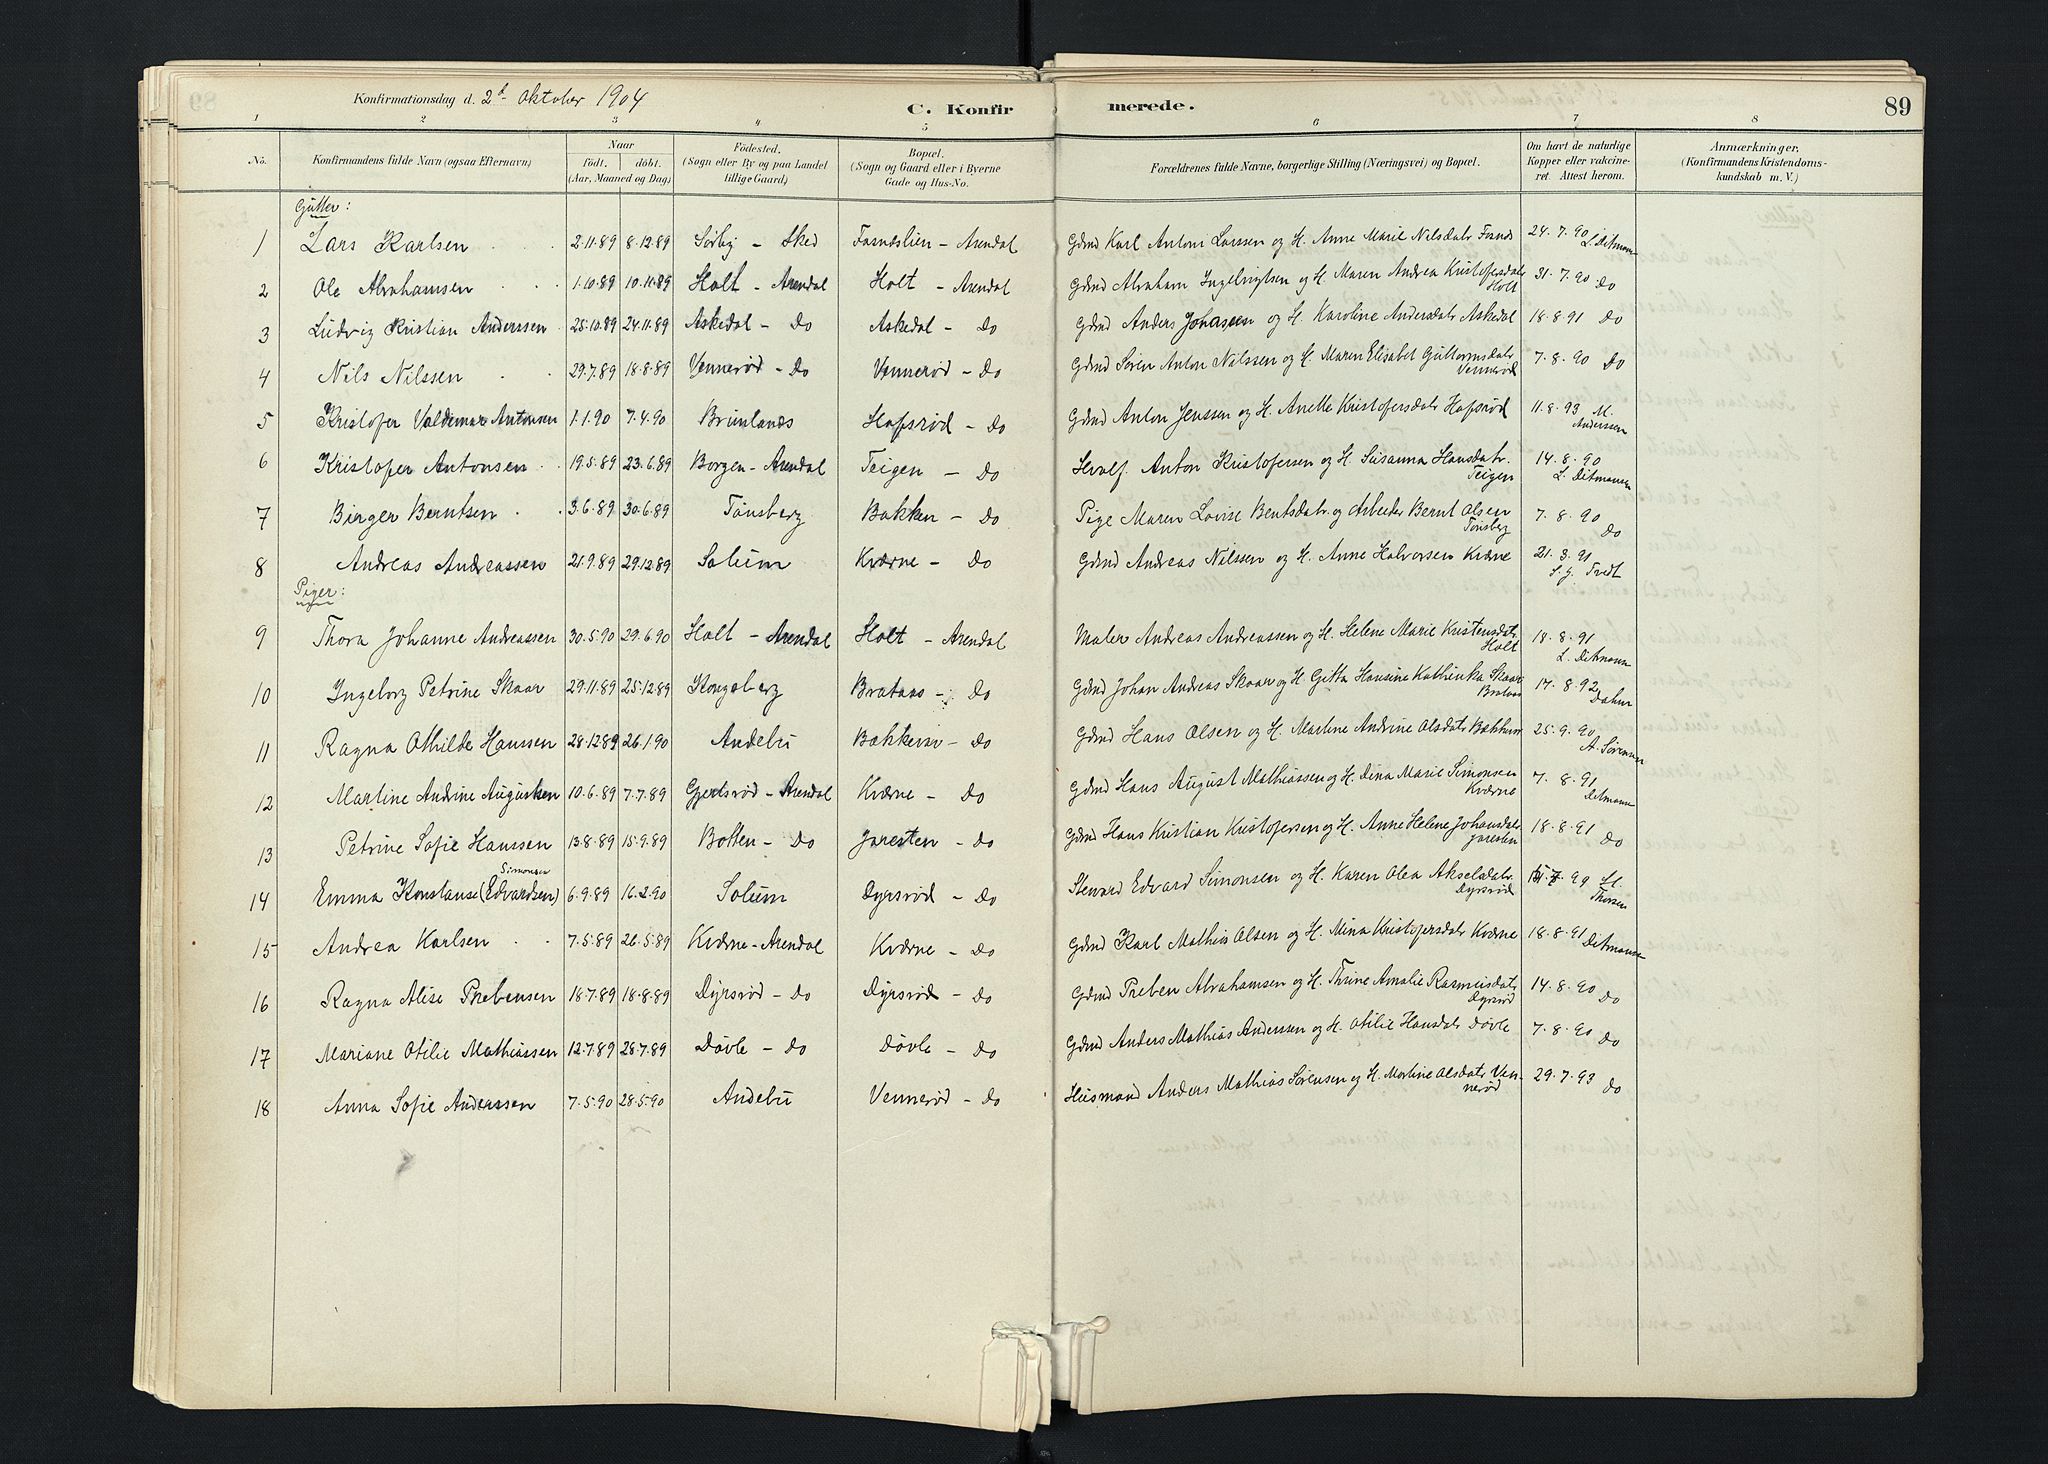 Konfirmationsdag d. 2d Oktober 1904
C. Konfirmerede.
89
1 2 3 4 5 6 7 8
No. Konfirmandens fulde Navn (ogsaa Efternavn) Naar født. døbt. (Aar, Maaned og Dag) Fødested. (Sogn eller By og paa Landet tillige Gaard) Bopæl. (Sogn og Gaard eller i Byerne Gade og Hus-No. Forældrenes fulde Navne, borgerlige Stilling (Næringsvei) og Bopæl. Om havt de naturlige Kopper eller vakcineret. Attest herom. Anmærkninger. (Konfirmandens Kristendomskundskab m. V.)
Gutter:
1 Lars Karlsen 2.11.89 8.12.89 Sørby - Sked - Arendal Gdmd Karl Anton Larssen og H. Anne Marie Nilsdatr 24.7.90 L. Ditmann
2 Ole Abrahamsen 1.10.89 10.11.89 Holt - Arendal Holt - Arendal Gdmd Abraham Ingebrigtsen og H. Maren Andrea Kristofersdatr Holt 31.7.90 do
3 Ludvig Kristian Anderssen 25.10.89 24.11.89 Askedal - Do Askedal - Do Gdmd Anders Johansen og H. Karoline Andersdatr Askedal 18.8.91 Do
4 Nils Nilssen 29.7.89 18.8.89 Vennerød - Do Vennerød - Do Gdmd Søren Anton Nilssen og H. Maren Elisabet Guttormsdatr Vennerød 7.8.90 Do
5 Kristofer Valdemar Antonsen 1.1.90 7.4.90 Brunlanæs Hafsrød - Do Gdmd Anton Jenssen og H. Anette Kristofersdatr Hafsrød 11.8.93 M. Anderssen
6 Kristofer Antonsen 19.5.89 23.6.89 Borgen - Arendal Teigen - Do Anton Kristofersen og H. Susanna Hansdatr. Teigen 14.8.90 L. Ditmansen
7 Birger Berntsen 3.6.89 30.6.89 Tønsberg Bakken - Do Pige Maren Lovise Bentsdatr og Arbeider Bernt Olsen Tønsberg 7.8.90 Do
8 Andreas Andreassen 21.9.89 29.12.89 Solum Kværne - Do Gdmd Andreas Nilssen og H. Anne Halvorsen Kværne 21.3.91 S. G. Tvedt
Piger:
9 Thora Johanne Andreassen 30.5.90 29.6.90 Holt - Arendal Holt - Arendal Maler Andreas Andreassen og H. Helene Marie Kristensdatr Holt 18.8.91 L. Ditmann
10 Ingeborg Petrine Skaar 29.11.89 25.12.89 Kongsberg Brataas - Do Gdmd Johan Andreas Skaar og H Gitta Hansine Kathinka Skaar Brataas 17.8.92
11 Ragna Othilde Hanssen 28.12.89 26.1.90 Andebu - Do Gdmd Hans Olsen og H. Martine Andrine Olsdatr 25.9.90 A. Sørensen
12 Martine Andrine Augustsen 10.6.89 7.7.89 Gjertsrød - Arendal Kværne - Do Gdmd Hans August Mathiassen og H. Dina Marie Simonsen Kværne 7.8.91 Ditmann
13 Petrine Sofie Hanssen 13.8.89 15.9.89 Botten - Do Jaresten - Do Gdmd Hans Kristian Kristofersen og H. Anne Helene Johansdatr Jaresten 18.8.91 Do
14 Emma Konstanse (Edvardsen) Simonsen 6.9.89 16.2.90 Solum Dyrsrød - Do Steward Edvard Simonsen og H. Karen Olea Akselsdatr Dyrsrød Thorsen
15 Andrea Karlsen 7.5.89 26.5.89 Kværne - Arendal Kværne - Do Gdmd Karl Mathias Olsen og H. Mina Kristofersdatr Kværne 18.8.91 Ditmann
16 Ragna Alise Prebensen 18.7.89 18.8.89 Dyrsrød - Do Dyrsrød - Do Gdmd Preben Abrahamsen og H. Thrine Amalie Rasmusdatr Dyrsrød 14.8.90 Do
17 Mariane Otilie Mathiassen 12.7.89 28.7.89 Døvle - Do Døvle - Do Gdmd Anders Mathias Anderssen og H. Otilie Hansdatr Døvle 7.8.90 Do
18 Anna Sofie Anderssen 7.5.90 28.5.90 Andebu Vennerød - Do Husmand Anders Mathias Sørensen og H. Martine Olsdatr Vennerød 29.7.93 Do